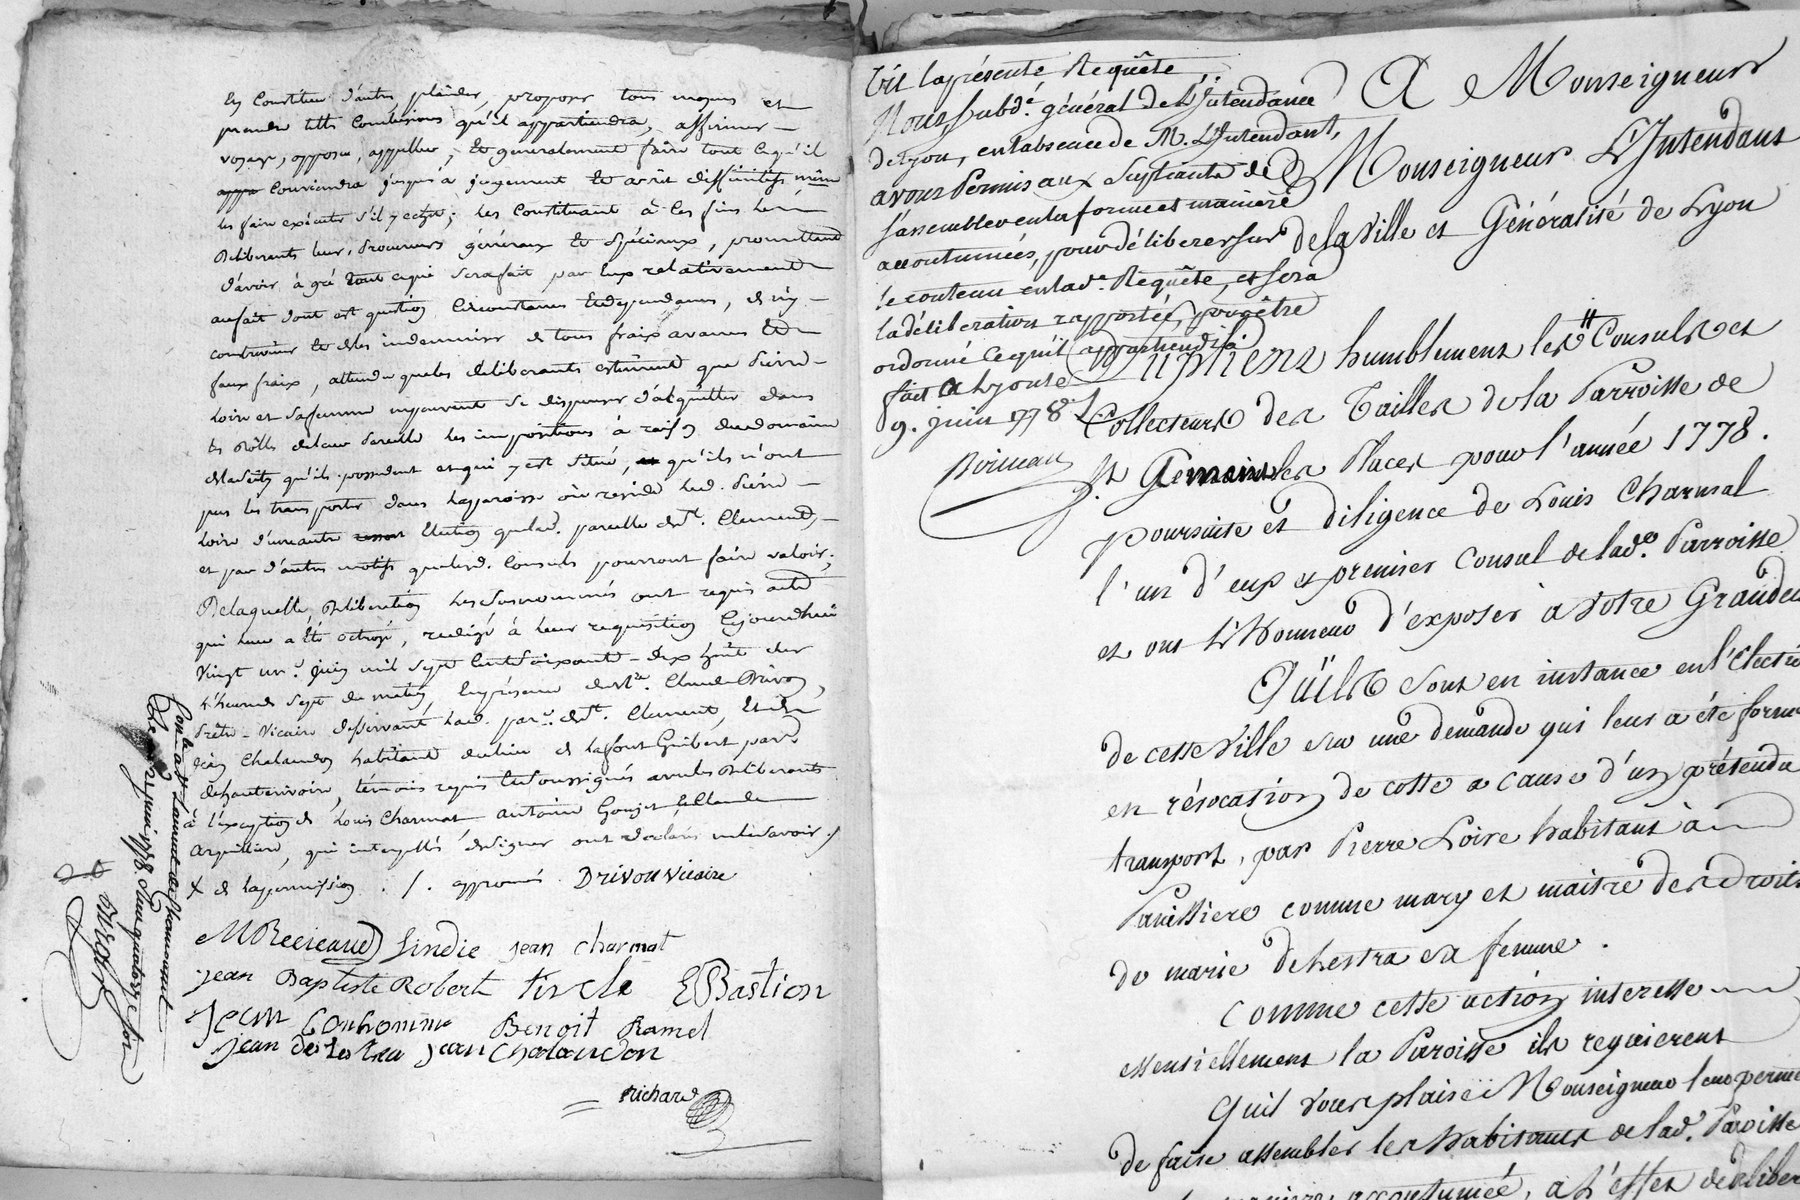 En Constituer d'autres plaider, proposer tous moyens et
prendre telles Conclusions qu'il appartiendra, affirmer
voyage, opposer, appeller, Et generalement faire tout Ce qu'il
Conviendra jusqu'à jugement Et arrêt diffinitifs même
les faire exécuter s'il y echet; les Constituant à Ces fins les
Deliberants leurs Procureurs généraux Et Spéciaux, promettant
d'avoir à gré tout ce qui sera fait par Eux relativement
au fait dont est question, Circonstances Et dependances, de n'y
contrevenir Et de les indemniser de tous fraix avances Et
faux fraix, attendu que les deliberants estiment que Pierre
Loire et sa femme ne peuvent se dispenser d'acquitter dans
les Rolles de leur Paroisse les impositions à raison du domaine
qu'ils possedent et qui y est situé, qu'ils n'ont
pas les transporter dans la parroisse où reside led. Pierre
Loire d'une autre Election que lad. paroisse de St. Clement,
et par d'autres motifs que lesd. Consuls pourront faire valoir;
De laquelle Deliberation les susnommés ont requis acte
qui leur a été octroyé, redigé à leur requisition Cejourdhui
Vingt un.e juin mil sept Cent Soixante-Dix huit sur
l'heure de Sept du matin, En présence de Mre. Claude Drivon,
Prêtre-Vicaire desservant lad. par. de St. Clement, Et de
Jean Chalandon habitant du lieu de Lafont Guibert parr.
de hauterivoire, témoins requis Et soussignés avec les Deliberants
à l'exception de Louis Charmat antoine Goujet Et Claude
arquilliere, qui interpellés de signer ont declaré ne le savoir ./.
+ de la permission ./. approuvé Drivon vicaire
M Recreaud Sindic jean charmat
jean Baptiste Robert E Bastion
Jean Bonhomme Benoit Ramel
jean delestra jean Chalandon
Richard
Con.lé à St Laurent de Chamousset
le 21 juin 1778 Reçu quatorze sols
Vu la présente Requête
Nous, Subdé. général de L'Intendance
de Lyon, en l'absence de M. L'Intendant,
avons Permis aux Supliants de
s'assembler en la forme et maniere
accoutumées, pour déliberer sur
le contenu en lad.e Requête, et sera
la déliberation rapportée, pour être
ordonné ce qu'il appartiendra
fait a Lyon le
9. juin 1778
A Monseigneur
Monseigneur L'Intendant
de la Ville et Généralité de Lyon
Suplient humblement les Consuls et
Collecteurs des Tailles de la Parroisse de
St Clement les Places pour l'année 1778.
poursuite et diligence de Louis Charmat
l'un d'eux et premier Consul de lad.e Parroisse
et ont L'Honneur d'exposer a votre Grandeu
Qu'ils sont en instance en l'Electio
de cette ville sur une demande qui leur a été forme
en révocation de cotte a cause d'un prétendu
transport, par Pierre Loire habitant à
Panissiere comme mary et maitre des Droits
de marie Delestra sa femme.
Comme cette action interesse
essentiellement la Paroisse ils requierent
Qu'il vous plaise Monseigneur leur perme
de faire assembler les habitants de lad. Paroisse
maniere accoutumée, a l'effet de deliber